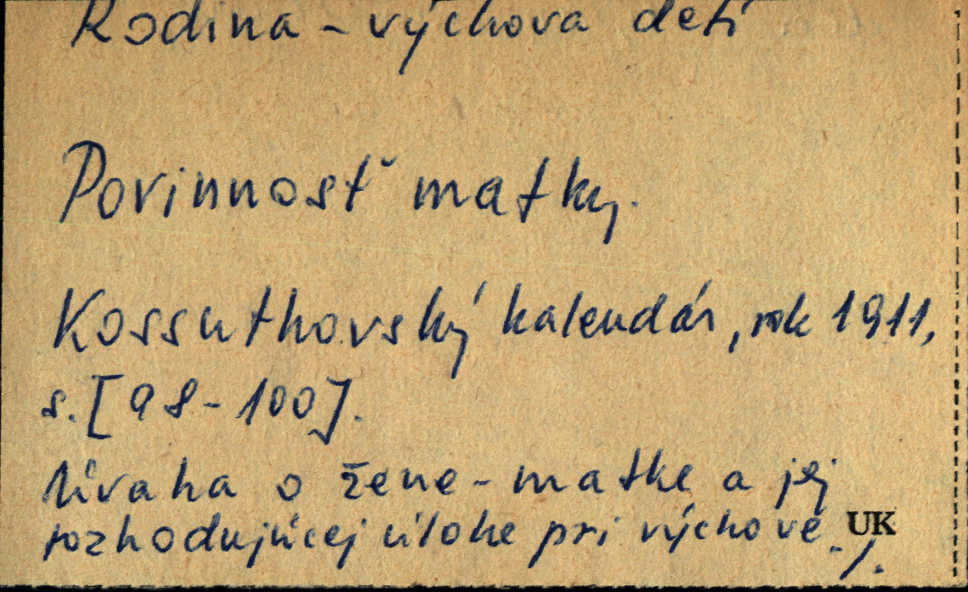 Rodina - výchova detí
Povinnosť matky.
Kossuthovský kalendár, rok 1911,
s. [98-100].
Úvaha o žene - matke a jej
rozhodujúcej úlohe pri výchove. /.
UK